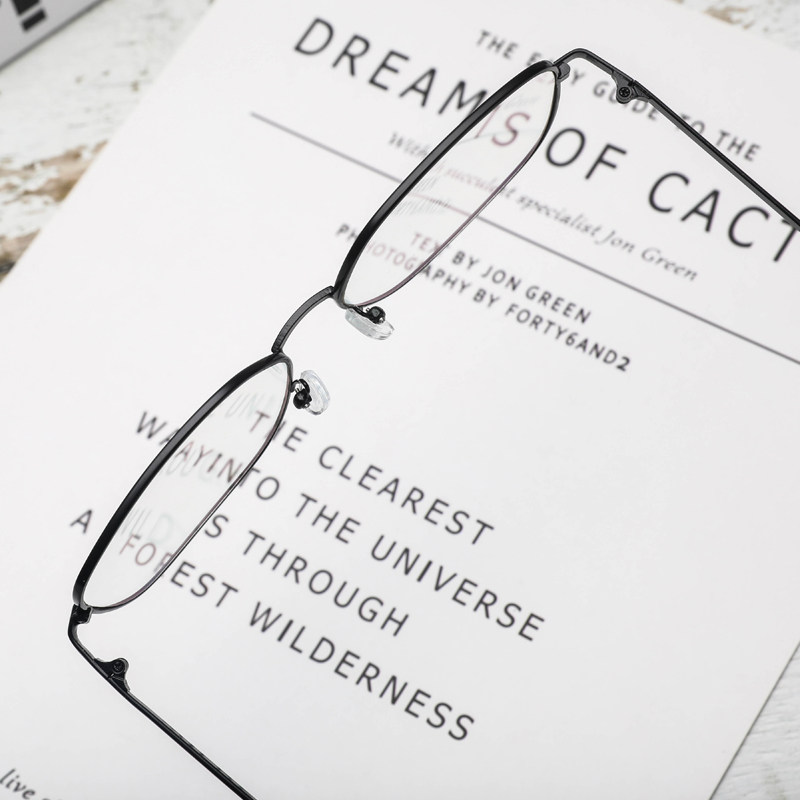 THE EASY GUIDE TO THE
DREAMS OF CACT
With succulent specialist Jon Green
TEXT BY JON GREEN
PHOTOGRAPHY BY FORTY6AND2
THE CLEAREST
WAY INTO THE UNIVERSE
IS THROUGH
A FOREST WILDERNESS
live